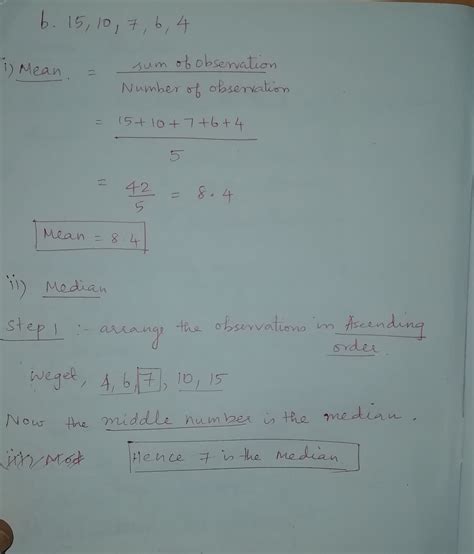 b. 15, 10, 7, 6, 4
i) Mean. = sum of observation
Number of observation
= 15+10+7+6+4
5
= 42/5 = 8.4
Mean = 8.4
ii) Median
Step 1 :- arrange the observations in Ascending
order.
we get, 4, 6, 7, 10, 15
Now the middle number is the median.
iii) Mod
Hence 7 is the Median